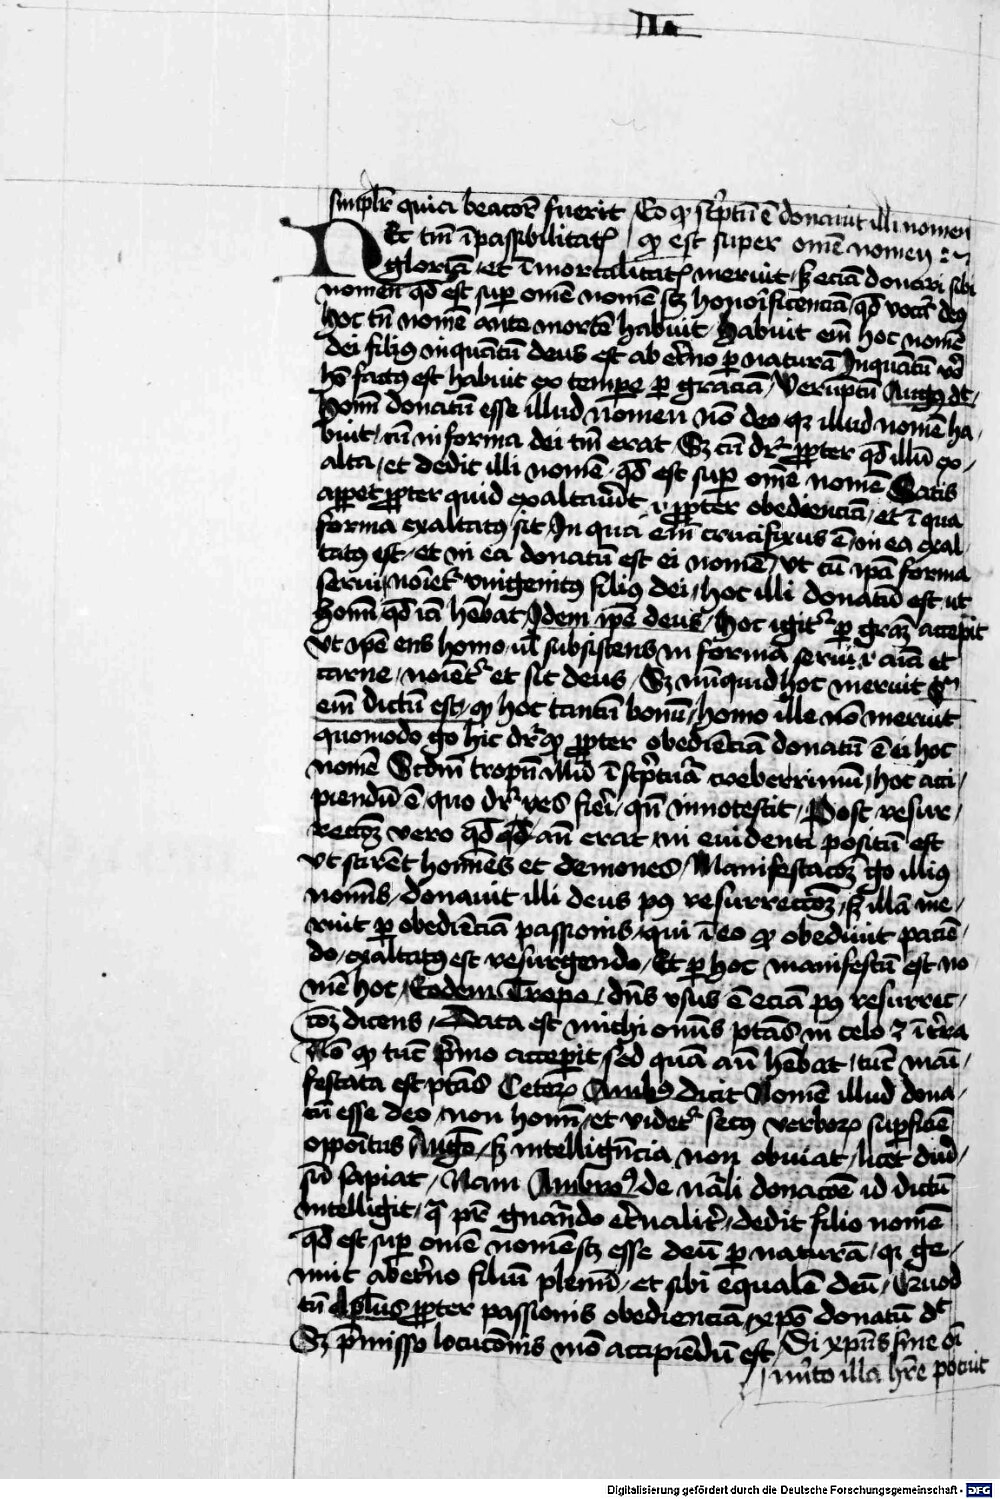 IIa
simplr quia beator fuerit / Eo qp scptu e donauit illi nomen
Nec tm ipassibilitate / qp est super ome nomen
gloria et imortalitate meruit / sz ecia donari sibi
nomen qd est sup ome nome scz honorificencia / qd vocar deus
hoc tn nome ante morte habuit / habuit em hoc nome
dei filius inquatu deus est ab eterno p natura Inquatu vo
ho factus est habuit ex tempore p gracia / Verumptn Augus dt /
homi donatu esse illud nomen no deo qr illud nome ha /
buit / cu in forma dei tm erat / Sz cu dr ppter qd illu ex /
alta / et dedit illi nome / qd est sup ome nome Satis
apparet ppter quid exaltauit / i ppter obediencia / et i qua
forma exaltatus sit / In qua em crucifixus e / in ea exal /
tatus est / et in ea donatu est ei nome / vt cu ipa forma
serui noietr vnigenitus filius dei / hoc illi donatu est ut
homi / qd ia hebat / Idem ipe deus / hoc igitr p gram accepit
vt ipe ens homo / ul subsistens in forma serui i aia et
carne / noietr et sit deus / Sz nuquid hoc meruit
em dictu est / qp hoc tantu bonu / homo ille no meruit
quomodo go hic dr qp ppter obediencia donatu e ei hoc
nome Scdm tropu illu i scptura creberrimum / hoc acci /
piendu e / quo dr res fieri / qn innotescit / Post resur /
reccoz vero qd an erat / in euidenti positu est
vt scirent homines et demones / Manifestacoz go illius
nominis / donauit illi deus pus resurreccoz / sz illa me /
ruit p obediencia passionis / qui i eo qp obediuit pacie /
do / exaltatus est resurgendo / Et p hoc manifestu est no
me hoc / Eodem Tropo / dns vsus e ecia pus resurrec /
coz dicens / Data est michi omis ptas in celo et i terra
No qp tuc primo acceperit / sed quam an hebat / tuc mani /
festata est ptas Ceteru Ambrosius dicit Nome illud dona /
tu esse deo / non homi / et videtr secus verboru supficie
oppoitus Augo / sz intelligencia non obuiat / licet diuer /
su sapiat / Nam Ambros de nrali donacoe id dictu
intelligit / qa pr gnando eternalitr / dedit filio nome
qd est sup ome nome scz esse deu p natura / qr ge /
nuit ab eterno filiu plenu / et sibi equale deu / Quod
tn Aplus ppter passionis obediencia / xpo donatu dt
Sz pmisso locucionis mo accipiendu est / Si xpus sine oi
mito illa hre potuit
Digitalisierung gefördert durch die Deutsche Forschungsgemeinschaft - DFG